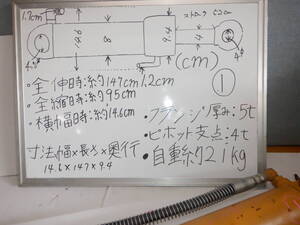 1.7cm
ストローク 520
8
9.4
(cm)
①
・全伸時:約147cm 1.2cm
・全縮時:約95cm
・横幅時:約14.6cm
寸法幅×長さ×奥行
14.6×147×9.4
・フランジ厚み:5t
・ピボット支点:4t
・自重約21kg